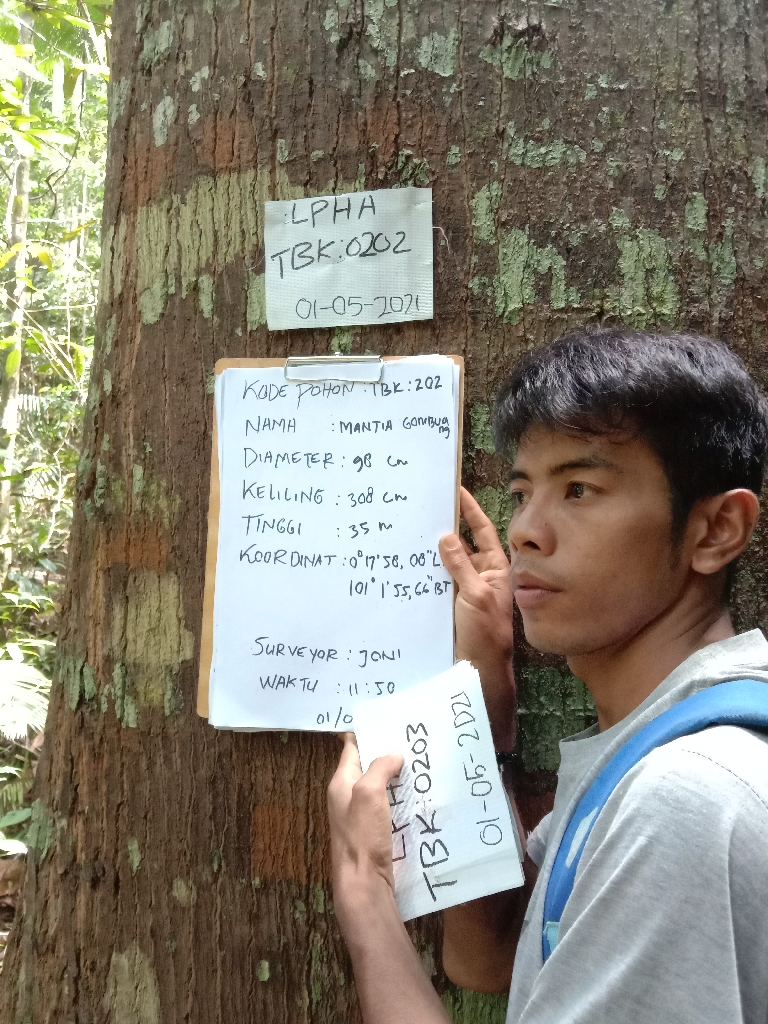 LPHA
TBK:0202
01-05-2021
KODE POHON : TBK:202
NAMA : MANTIA GOMBUANG
DIAMETER : 98 cm
KELILING : 308 cm
TINGGI : 35 m
KOORDINAT : 0°17'58,08"L
101°1'55,66"BT
SURVEYOR : JONI
WAKTU : 11:50
01/0
LPHA
TBK:0203
01-05-2021